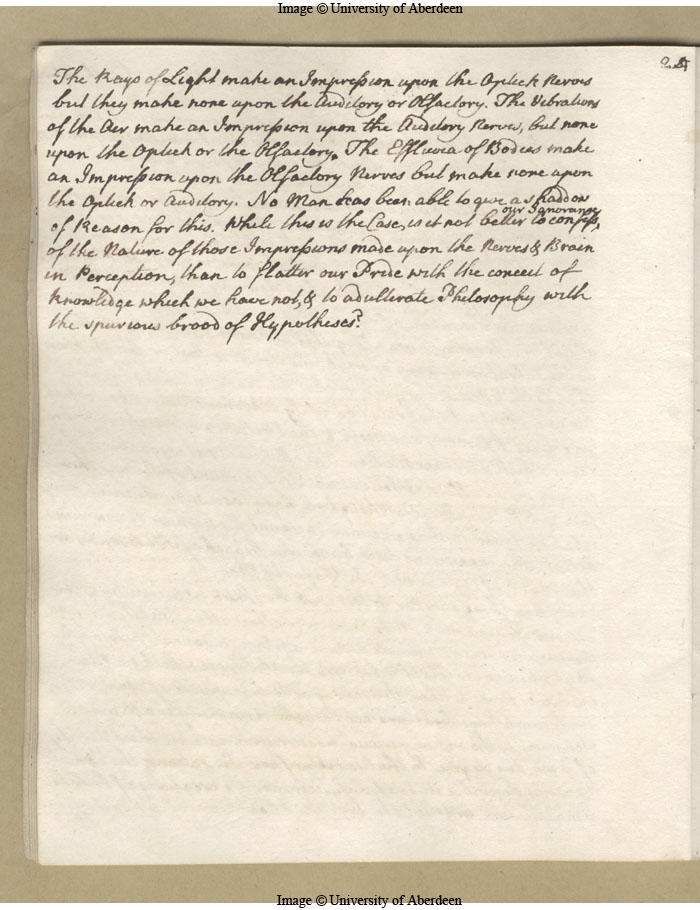 Image © University of Aberdeen
24
The Rays of Light make an Impression upon the Optick Nerves
but they make none upon the Auditory or Olfactory. The Vibrations
of the Aer make an Impression upon the Auditory Nerves, but none
upon the Optick or the Olfactory. The Effluvia of Bodies make
an Impression upon the Olfactory Nerves but make none upon
the Optick or Auditory. No Man has been able to give a shaddow
of Reason for this. While this is the Case, is it not better to confess
our Ignorance
of the Nature of those Impressions made upon the Nerves & Brain
in Perception, than to flatter our Pride with the conceit of
knowledge which we have not, & to adulterate Philosophy with
the spurious brood of Hypotheses?
Image © University of Aberdeen